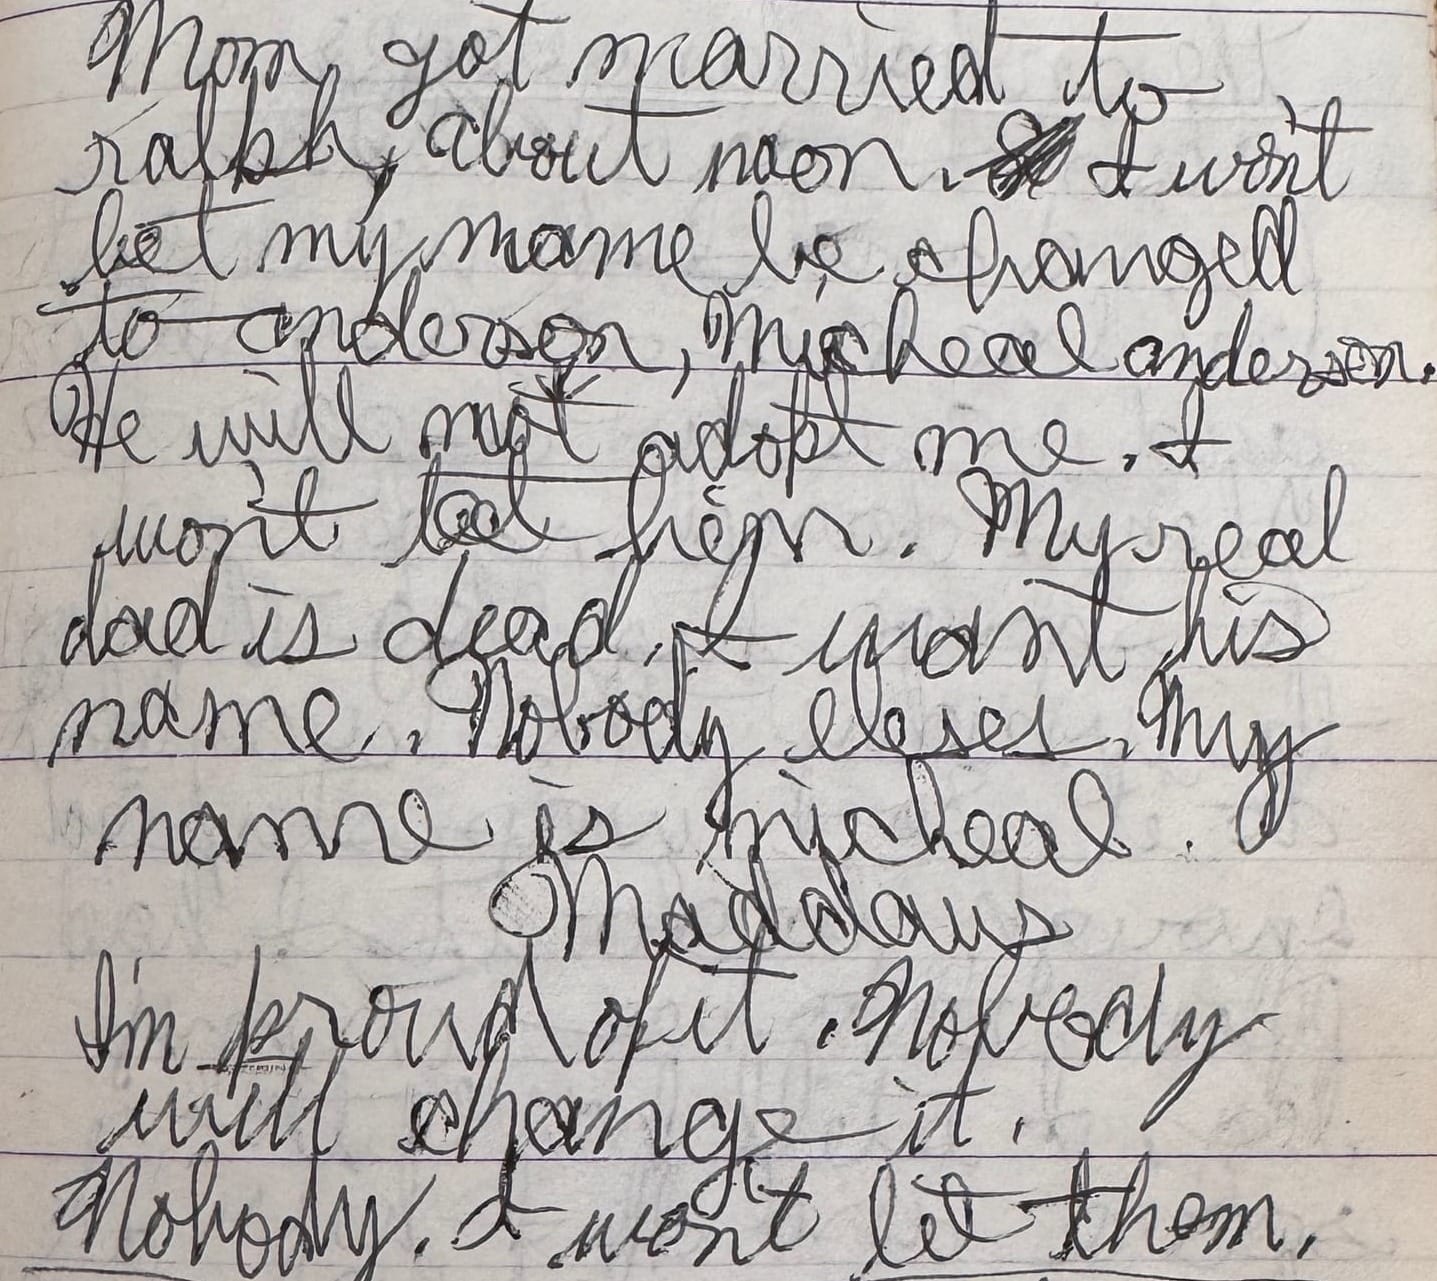 Mom got married to
ralph, about noon. I won't
let my name be changed
to anderson, Micheal anderson.
He will not adopt me. I
won't let him. My real
dad is dead. I want his
name. Nobody elses. My
name is micheal.
Maddaus
I'm proud of it. Nobody
will change it.
Nobody. I won't let them.